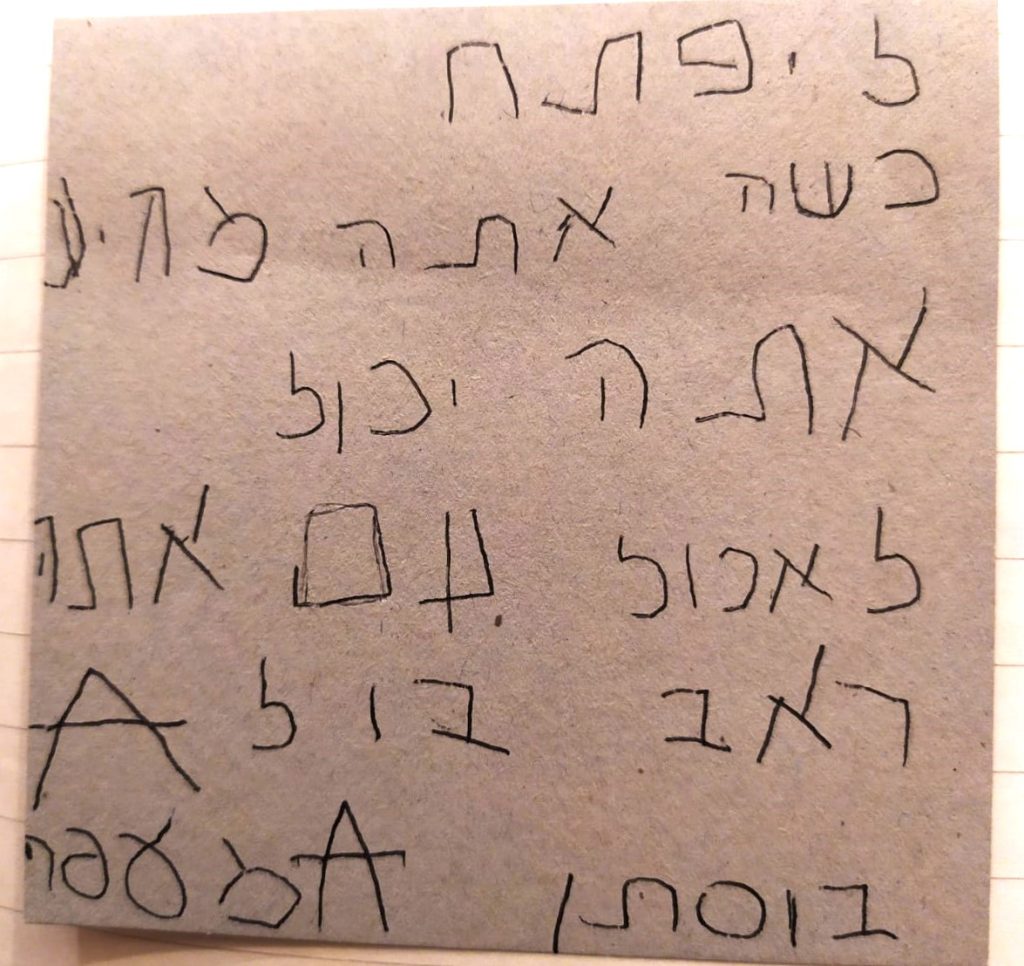 ליפתח
כשה אתה מגיע
אתה יכול
לאכול גם אתה
ראב בול A
בוסתן A